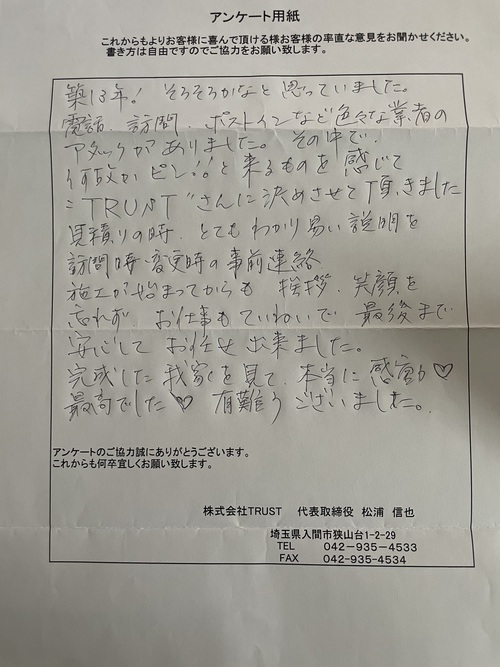 アンケート用紙
これからもよりお客様に喜んで頂ける様お客様の率直な意見をお聞かせください。
書き方は自由ですのでご協力をお願い致します。
築13年! そろそろかなと思っていました。
電話、訪問、ポストインなど色々な業者の
アタックがありました。その中で、
何故かピン!!と来るものを感じて
"TRUST"さんに決めさせて頂きました
見積りの時、とてもわかり易い説明を
訪問時・変更時の事前連絡
施工が始まってからも 挨拶、笑顔を
忘れず、お仕事もていねいで 最後まで
安心して お任せ出来ました。
完成した我家を見て、本当に感激♡
最高でした♡ 有難うございました。
アンケートのご協力誠にありがとうございます。
これからも何卒宜しくお願い致します。
株式会社TRUST 代表取締役 松浦 信也
埼玉県入間市狭山台1-2-29
TEL 042-935-4533
FAX 042-935-4534